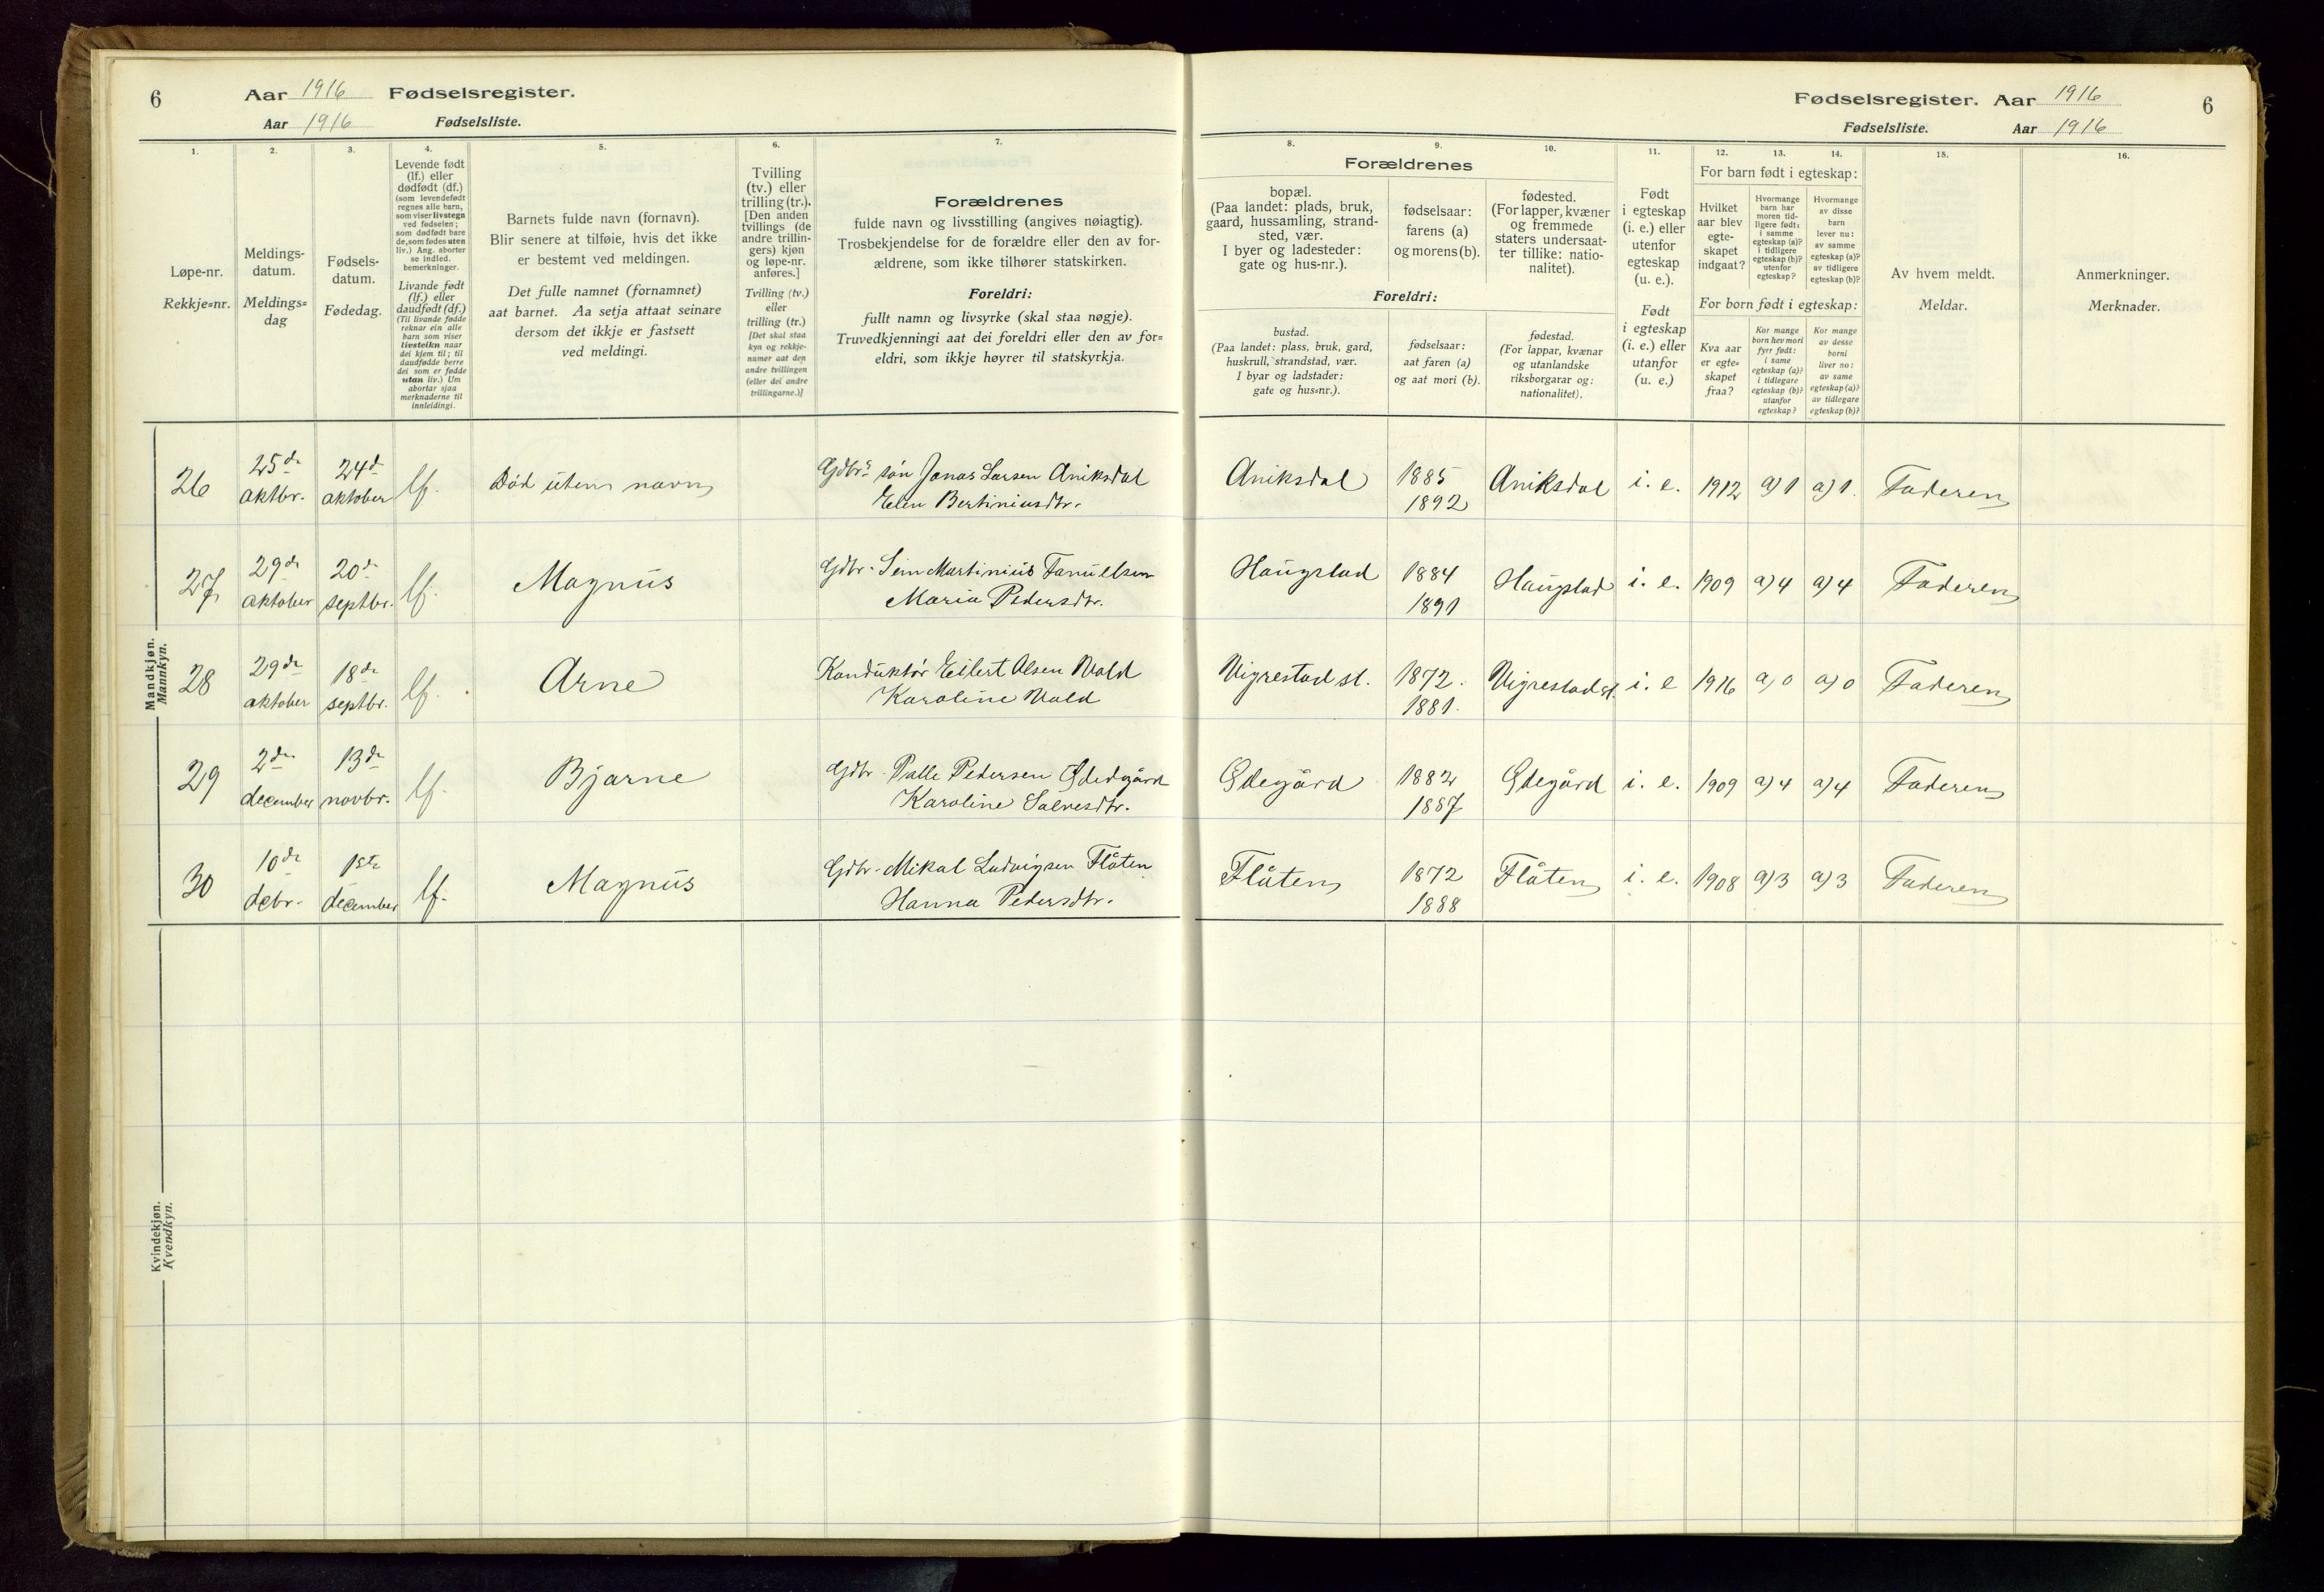 6
Aar 1916 Fødselsregister.
Aar 1916 Fødselsliste.
Fødselsregister. Aar 1916
6
Fødselsliste. Aar 1916
1.
Løpe-nr.
Rekkje=nr.
2.
Meldings-
datum.
Meldings=
dag
3.
Fødsels-
datum.
Fødedag.
4.
Levende født
(lf.) eller
dødfødt (df.)
(som levendefødt
regnes alle barn,
som viser livstegn
ved fødselen;
som dødfødt bare
de, som fødes uten
liv.) Ang. aborter
se indled.
bemerkninger.
Livande født
(lf.) eller
daudfødt (df.)
(Til livande fødde
reknar ein alle
barn som viser
livsteikn naar
dei kjem til; til
daudfødde berre
dei som er fødde
utan liv.) Um
abortar sjaa
merknaderne til
innleidingi.
5.
Barnets fulde navn (fornavn).
Blir senere at tilføie, hvis det ikke
er bestemt ved meldingen.
Det fulle namnet (fornamnet)
aat barnet. Aa setja attaat seinare
dersom det ikkje er fastsett
ved meldingi.
6.
Tvilling
(tv.) eller
trilling (tr.).
[Den anden
tvillings (de
andre trillin-
gers) kjøn
og løpe-nr.
anføres.]
Tvilling (tv.)
eller
trilling (tr.)
[Det skal staa
kyn og rekkje-
numer aat den
andre tvillingen
(eller dei andre
trillingarne.)]
7.
Forældrenes
fulde navn og livsstilling (angives nøiagtig).
Trosbekjendelse for de forældre eller den av for-
ældrene, som ikke tilhører statskirken.
Foreldri:
fullt namn og livsyrke (skal staa nøgje).
Truvedkjenningi aat dei foreldri eller den av for=
eldri, som ikkje høyrer til statskyrkja.
8.
Forældrenes
bopæl.
(Paa landet: plads, bruk,
gaard, hussamling, strand-
sted, vær.
I byer og ladesteder:
gate og hus-nr.).
Foreldri:
bustad.
(Paa landet: plass, bruk, gard,
huskrull, strandstad, vær.
I byar og ladstader:
gate og hus=nr.).
9.
fødselsaar:
farens (a)
og morens (b).
fødselsaar:
aat faren (a)
og aat mori (b).
10.
fødested.
(For lapper, kvæner
og fremmede
staters undersaat-
ter tillike: natio-
nalitet).
fødestad.
(For lappar, kvænar
og utanlandske
riksborgarar og:
nationalitet).
11.
Født
i egteskap
(i. e.) eller
utenfor
egteskap
(u. e.).
Født
i egteskap
(i. e.) eller
utanfor
(u. e.)
12.
For barn født i egteskap:
Hvilket
aar blev
egte-
skapet
indgaat?
For born født i egteskap:
Kva aar
er egte=
skapet
fraa?
13.
Hvormange
barn har
moren tid-
ligere født:
i samme
egteskap (a)?
i tidligere
egteskap (b)?
utenfor
egteskap?
Kor mange
born hev mori
fyrr født:
i same
egteskap (a)?
i tidlegare
egteskap (b)?
utanfor
egteskap?
14.
Hvormange
av disse
barn
lever nu:
av samme
egteskap (a)?
av tidligere
egteskap (b)?
Kor mange
av desse
borni
liver no:
av same
egteskap (a)?
av tidlegare
egteskap (b)?
15.
Av hvem meldt.
Meldar.
16.
Anmerkninger.
Merknader.
Mandkjøn.
Mannkyn.
26 25de oktbr. 24de oktober lf. Død uten navn Gdbrs søn Jonas Larsen Aniksdal Aniksdal 1885 Aniksdal i. e. 1912 a) 1 a) 1. Faderen
Elen Bertiniusdtr. 1892
27 29de oktober 20de septbr. lf. Magnus Gdbr. Sem Martinius Tanuelsen Haugstad 1884 Haugstad i. e. 1909 a) 4 a) 4 Faderen
Maria Pedersdtr. 1891
28 29de oktober 18de septbr. lf. Arne Konduktør Eilert Olsen Vold Vigrestad st. 1872. Vigrestad st. i. e 1916 a) 0 a) 0 Faderen
Karoline Vold 1881.
29 2de december 13de novbr. lf. Bjarne Gdbr. Palle Pedersen Ødegård Ødegård 1882 Ødegård i. e. 1909 a) 4 a) 4 Faderen
Karoline Salvesdtr. 1887
30 10de debr. 1ste december lf. Magnus Gdbr. Mikal Ludvigsen Flåten Flåten 1872 Flåten i. e. 1908 a) 3 a) 3 Faderen
Hanna Pedersdtr. 1888
Kvindekjøn.
Kvendkyn.